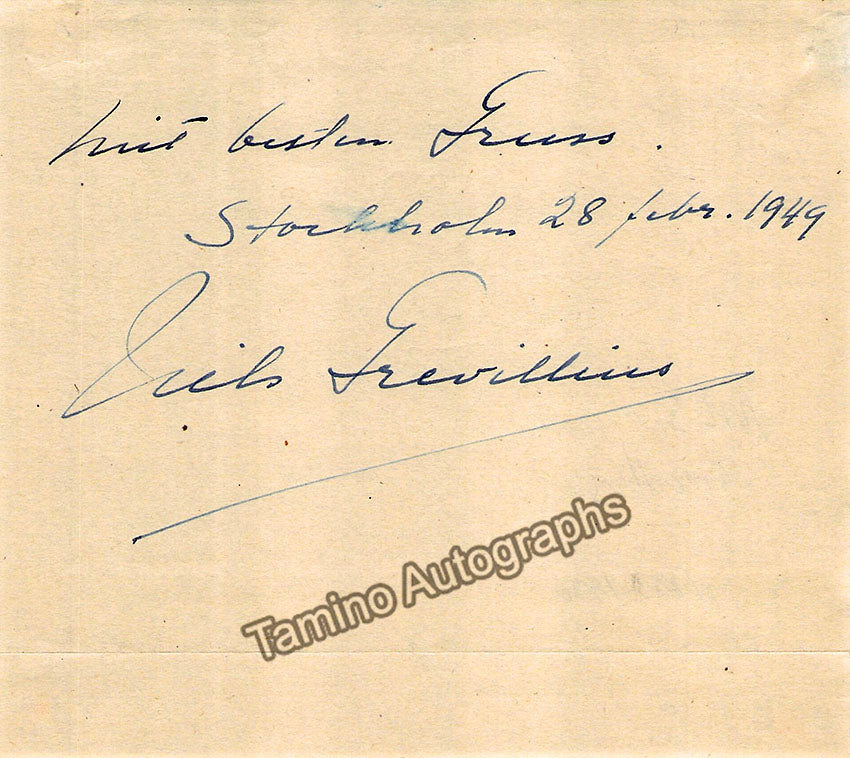 mit besten Gruss.
Stockholm 28 febr. 1949
Nils Grevillius
Tamino Autographs